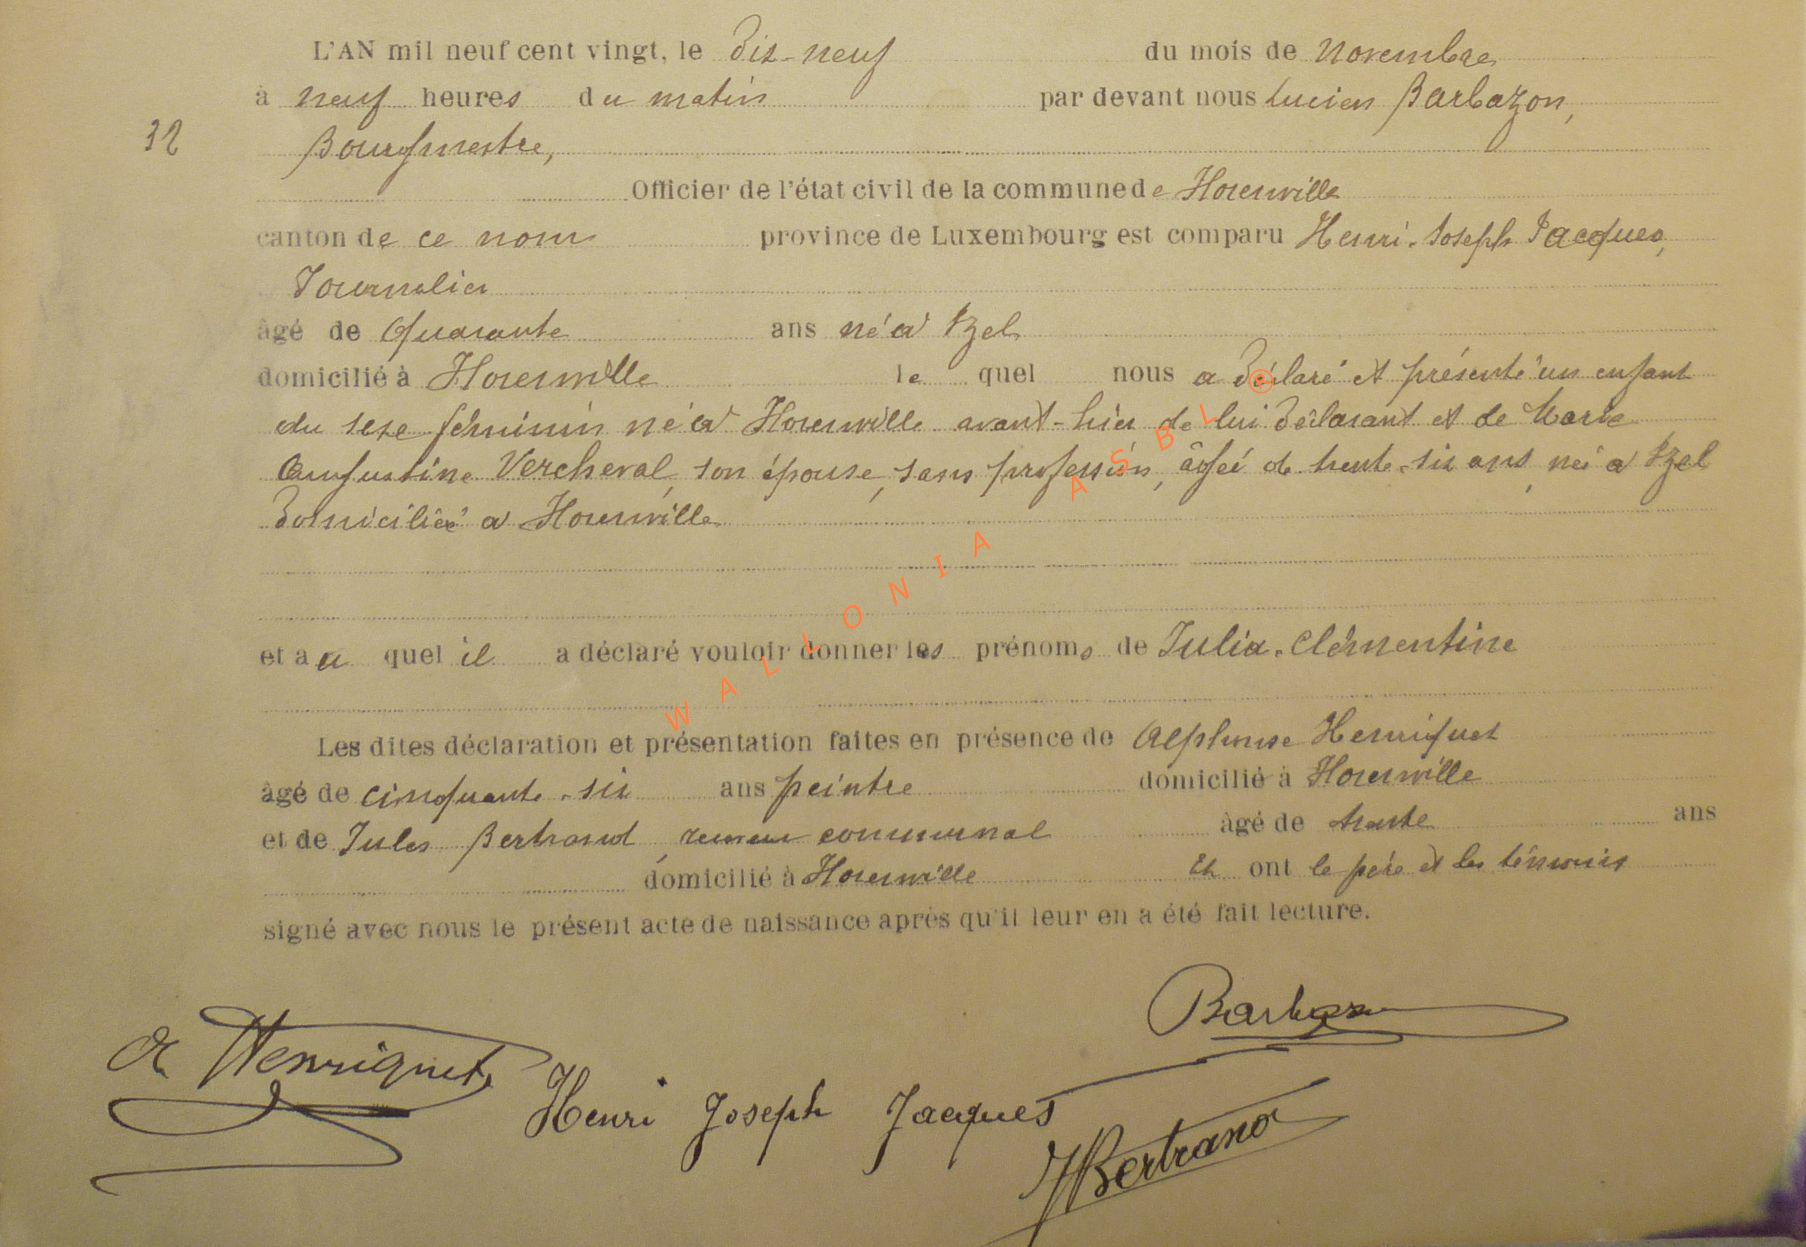 L'AN mil neuf cent vingt, le Dix-neuf du mois de Novembre
à neuf heures du matin par devant nous Lucien Barbazon,
32
Bourgmestre,
Officier de l'état civil de la commune de Florenville
canton de ce nom province de Luxembourg est comparu Henri-Joseph Jacques,
Journalier
âgé de Quarante ans né à Izel
domicilié à Florenville le quel nous a Déclaré et présenté un enfant
du sexe féminin né à Florenville avant-hier de lui Déclarant et de Marie
Augustine Vercheval, son épouse, sans profession, âgée de trente-six ans, née à Izel
Domiciliée à Florenville
et au quel il a déclaré vouloir donner les prénoms de Julia-Clémentine
Les dites déclaration et présentation faites en présence de Alphonse Henriquet
âgé de cinquante-six ans peintre domicilié à Florenville
et de Jules Bertrand, communal âgé de trente ans
domicilié à Florenville Et ont le père et les témoins
signé avec nous le présent acte de naissance après qu'il leur en a été fait lecture.
Barbazon
A Henriquet
Henri Joseph Jacques
J Bertrand
WALLONIA ASBL ©